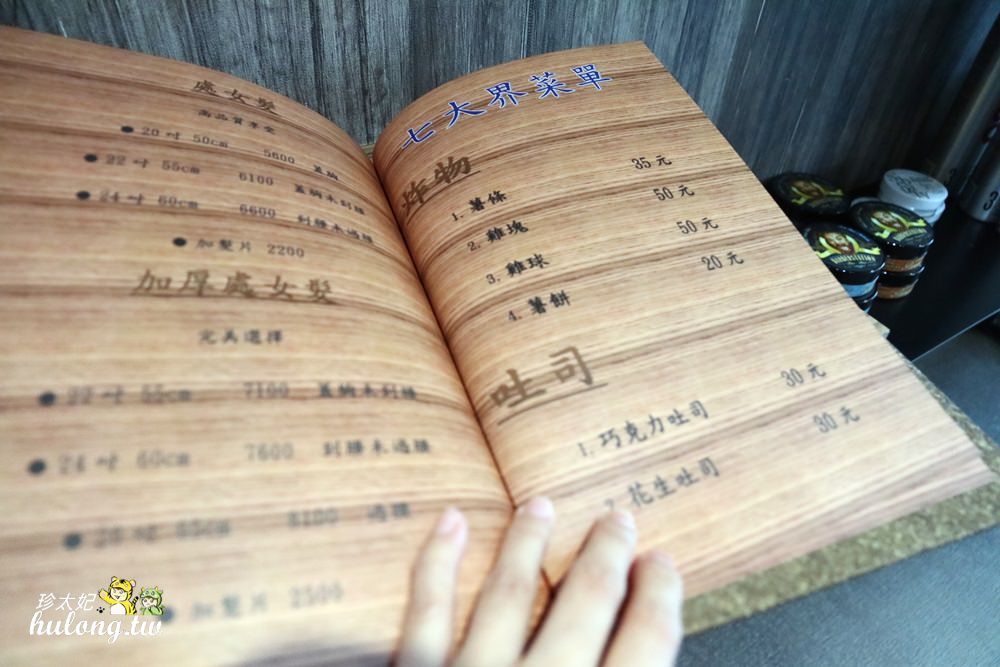 處女髮
高品質享受
● 20 吋 50cm 5600 蓋胸
● 22 吋 55cm 6100 蓋胸未到腰
● 24 吋 60cm 6600 到腰未過腰
● 加髮片 2200
加厚處女髮
完美選擇
● 22 吋 55cm 7100 蓋胸未到腰
● 24 吋 60cm 7600 到腰未過腰
吋 8100 過腰
● 加髮片 2500
七大界菜單
炸物
1. 薯條 35 元
2. 雞塊 50 元
3. 雞球 50 元
4. 薯餅 20 元
吐司
1. 巧克力吐司 30 元
2. 花生吐司 30 元
珍太妃
hulong.tw